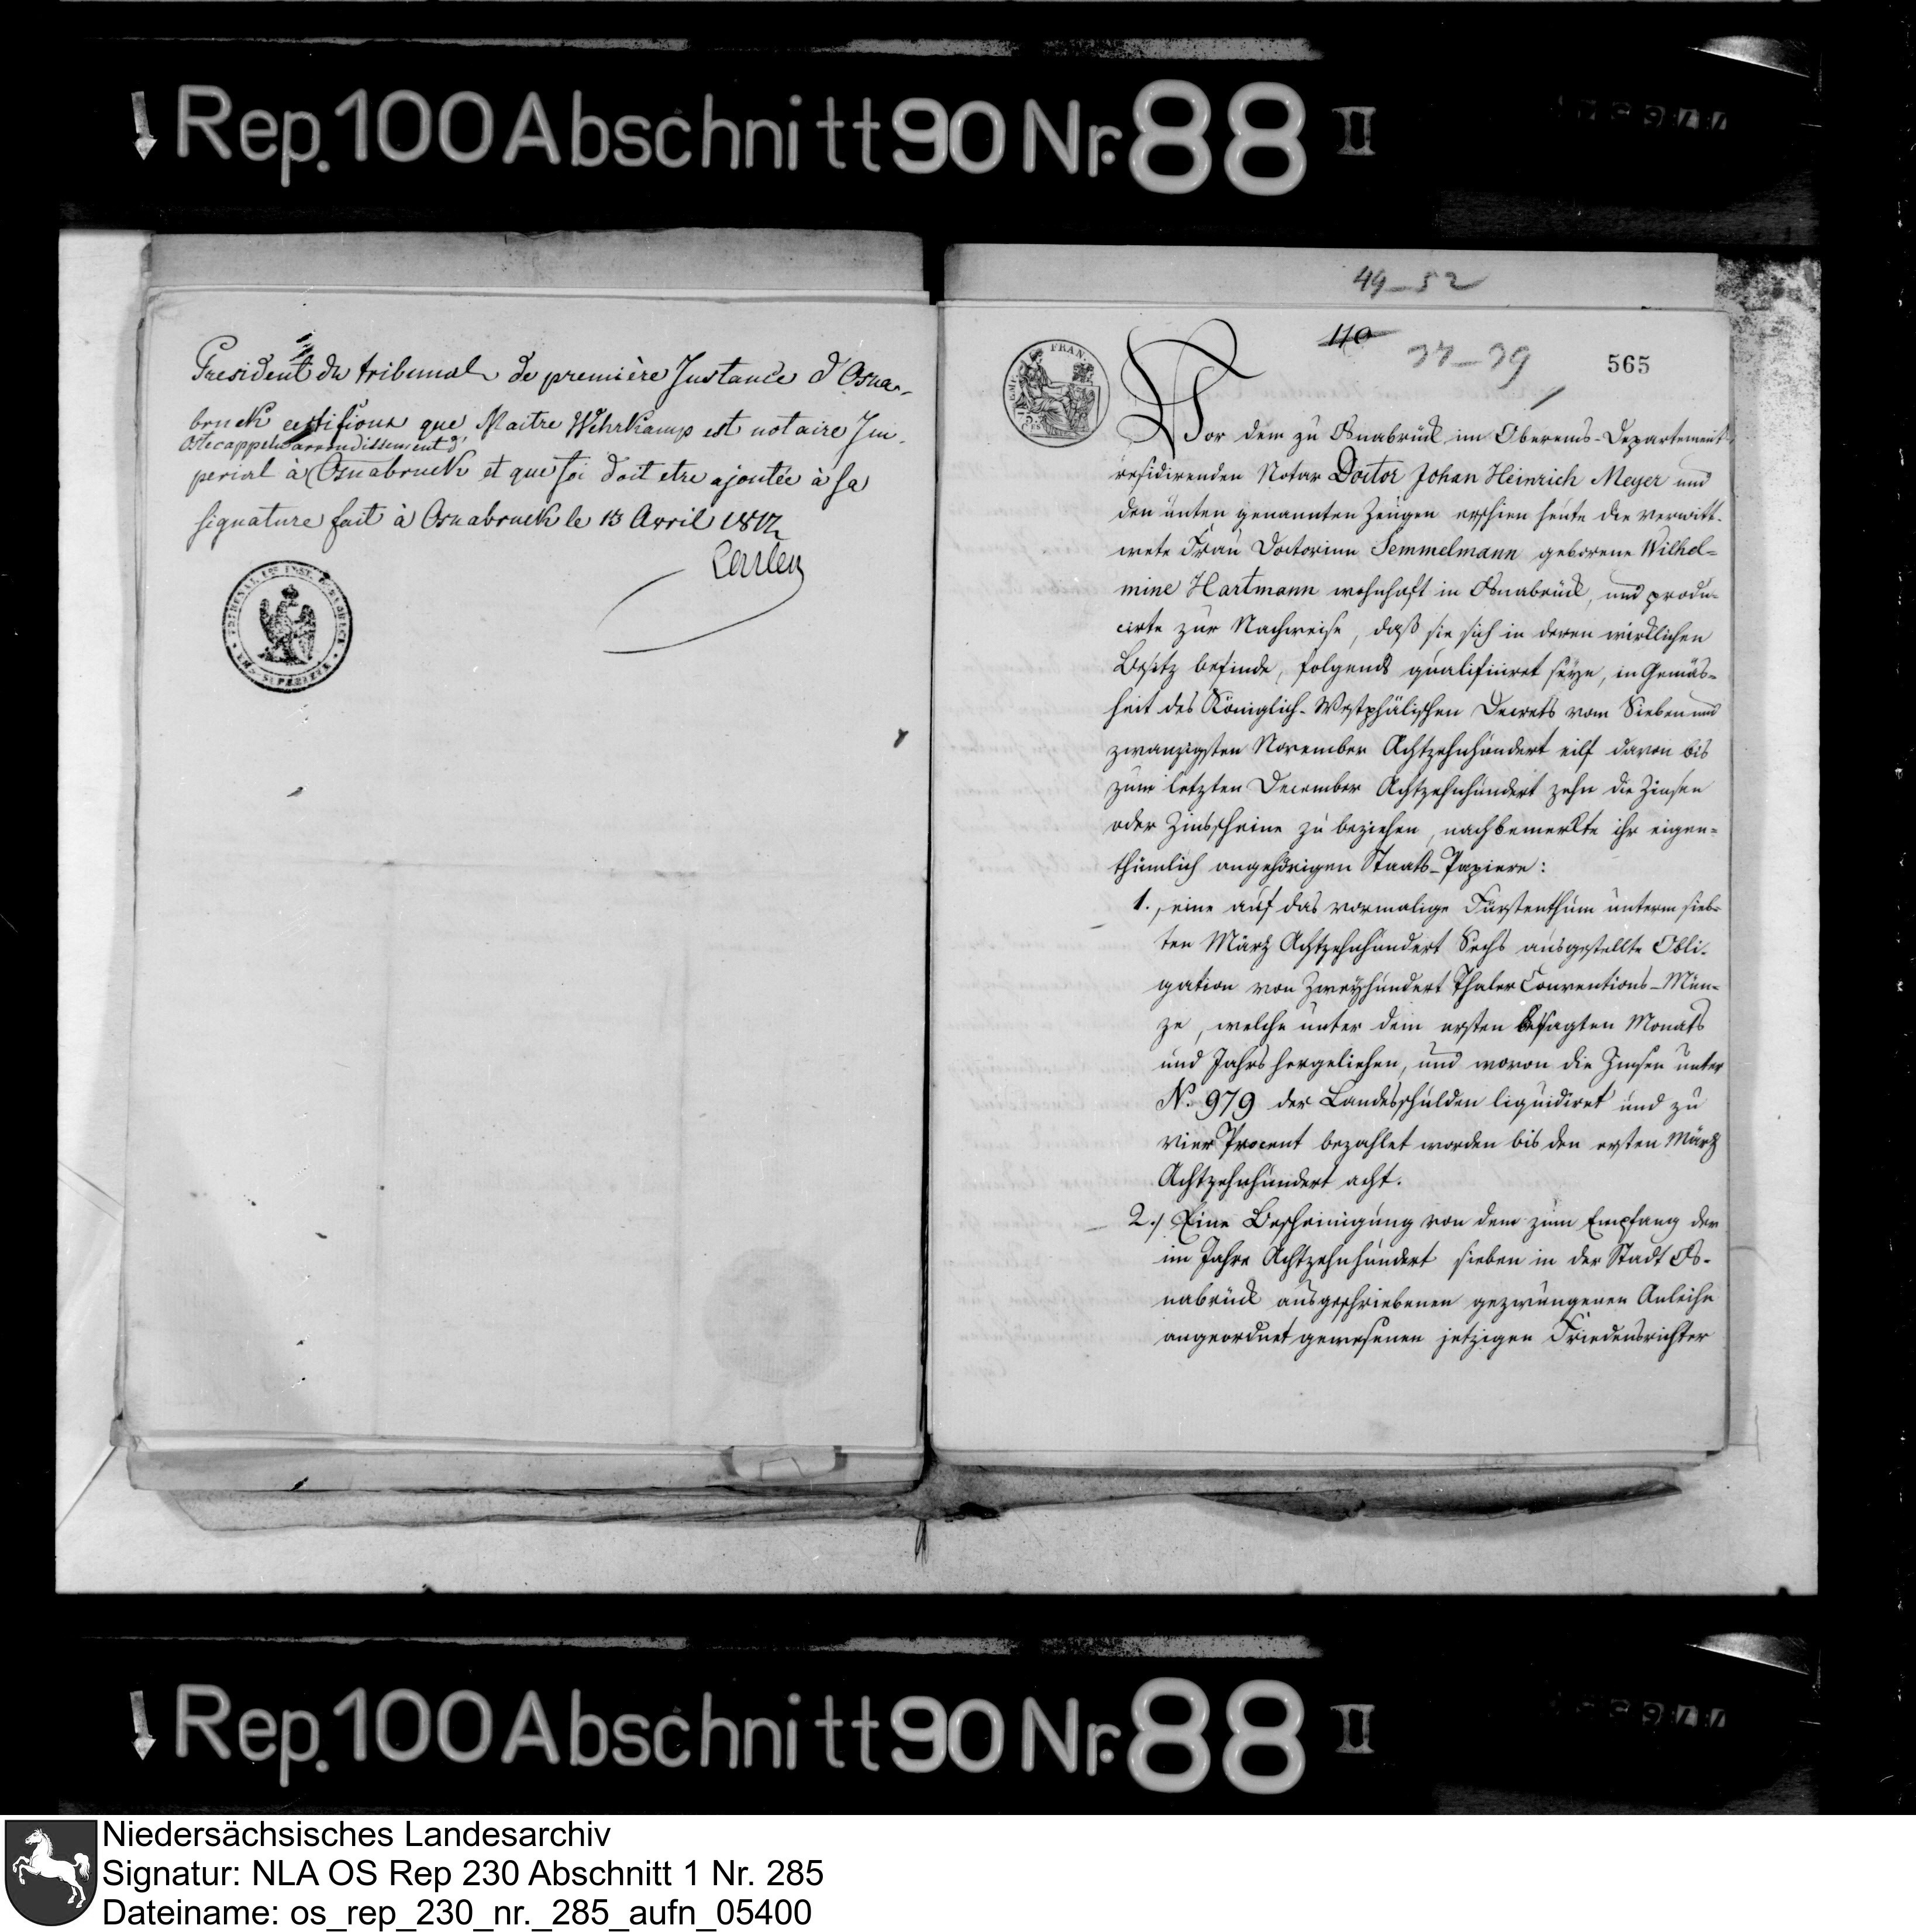 Rep. 100 Abschnitt 90 Nr. 88 II
President du tribunal de première Instance d'Osna-
bruck certifions que Maitre Wehrkamp est notaire Im-
Ostecappeln arrondissement d'
perial à Osnabruck et que foi doit etre ajoutée à sa
signature fait à Osnabruck le 13 Avril 1812
49-52
110
565
FRAN.
Vor dem zu Osnabrück im Oberems-Departement
residirenden Notar Doctor Johan Heinrich Meyer und
den unten genannten Zeugen erschien heute die verwitt-
wete Frau Doctorinn Semmelmann geborene Wilhel-
mine Hartmann wohnhaft in Osnabrück, und produ-
cirte zur Nachweise, daß sie sich in deren wirklichen
Besitz befinde, folgends qualifiiret seye, in Gemäs-
heit des Königlich-Westphälischen Decrets vom Sieben und
zwanzigsten November Achtzehnhundert eilf davon bis
zum letzten December Achtzehnhundert zehn die Zinsen
oder Zinsscheine zu beziehen, nachbemerkte ihr eigen-
thümlich angehörigen Staats-Papiere:
1., eine auf das vormalige Fürstenthum unterm sieb-
ten März Achtzehnhundert Sechs ausgestellte Obli-
gation von Zweyhundert Thaler Conventions-Mün-
ze, welche unter dem ersten besagten Monats
und Jahrs hergeliehen, und wovon die Zinsen unter
N. 979 der Landesschulden liquidiret und zu
vier Procent bezahlet worden bis den ersten März
Achtzehnhundert acht.
2./ Eine Bescheinigung von dem zum Empfang der
im Jahre Achtzehnhundert sieben in der Stadt Os-
nabrück ausgeschriebenen gezwungenen Anleihe
angeordnet gewesenen jetzigen Friedensrichter
Rep. 100 Abschnitt 90 Nr. 88 II
Niedersächsisches Landesarchiv
Signatur: NLA OS Rep 230 Abschnitt 1 Nr. 285
Dateiname: os_rep_230_nr._285_aufn_05400